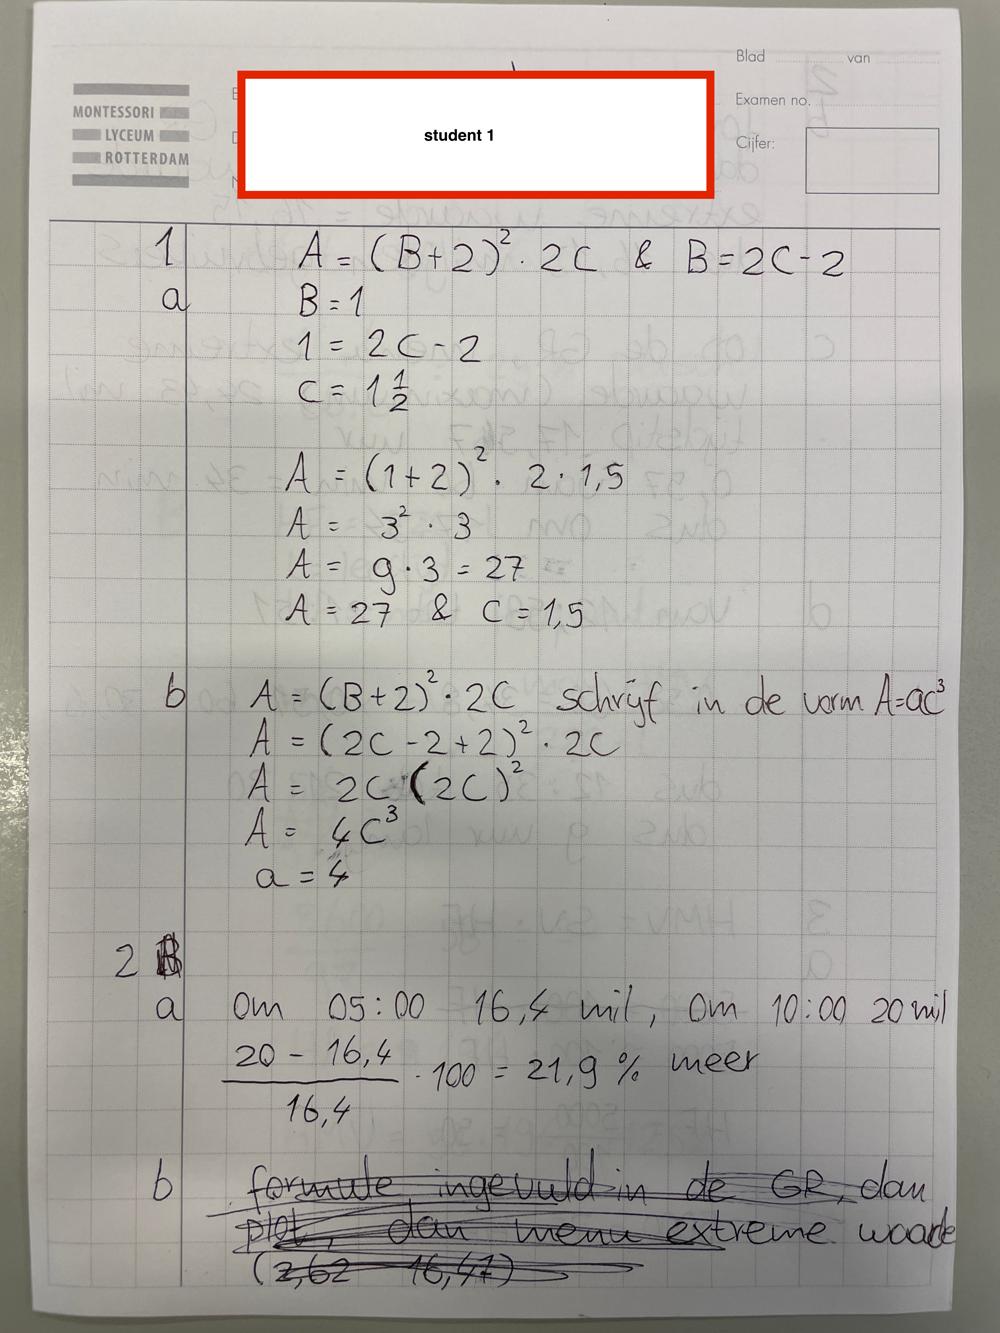 Blad van
MONTESSORI
LYCEUM
ROTTERDAM
student 1
Examen no.
Cijfer:
1 A = (B+2)² · 2C & B = 2C - 2
a B = 1
1 = 2C - 2
C = 1 1/2
A = (1+2)² · 2 · 1,5
A = 3² · 3
A = 9 · 3 = 27
A = 27 & C = 1,5
b A = (B+2)² · 2C schrijf in de vorm A=aC³
A = (2C - 2 + 2)² · 2C
A = 2C · (2C)²
A = 4C³
a = 4
2
a Om 05:00 16,4 mil, Om 10:00 20 mil
20 - 16,4
/ 16,4 · 100 = 21,9 % meer
b formule ingevuld in de GR, dan
plot, dan menu extreme waarde
(2,62 16,47)